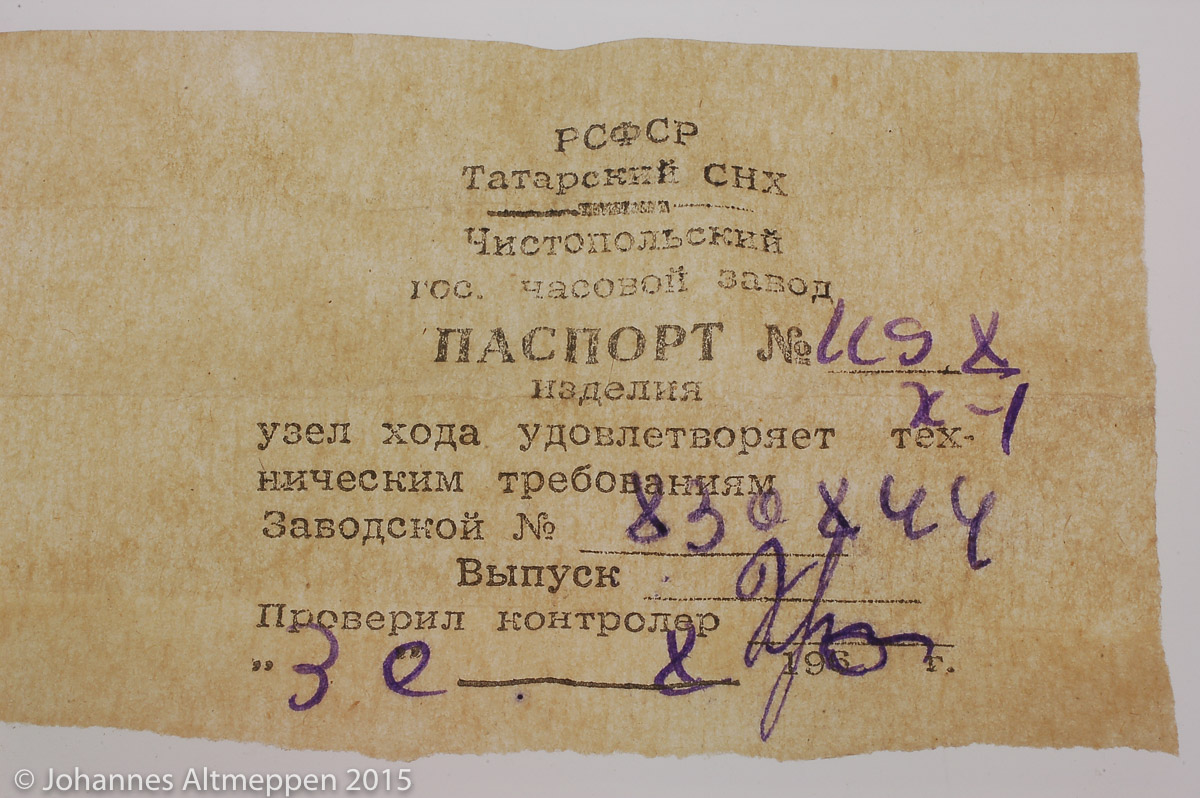 РСФСР
Татарский СНХ
Чистопольский
гос. часовой завод
ПАСПОРТ №
изделия
х-1
узел хода удовлетворяет тех-
ническим требованиям
Заводской № 830844
Выпуск
Проверил контролер
„30“ X 196 г.
© Johannes Altmeppen 2015